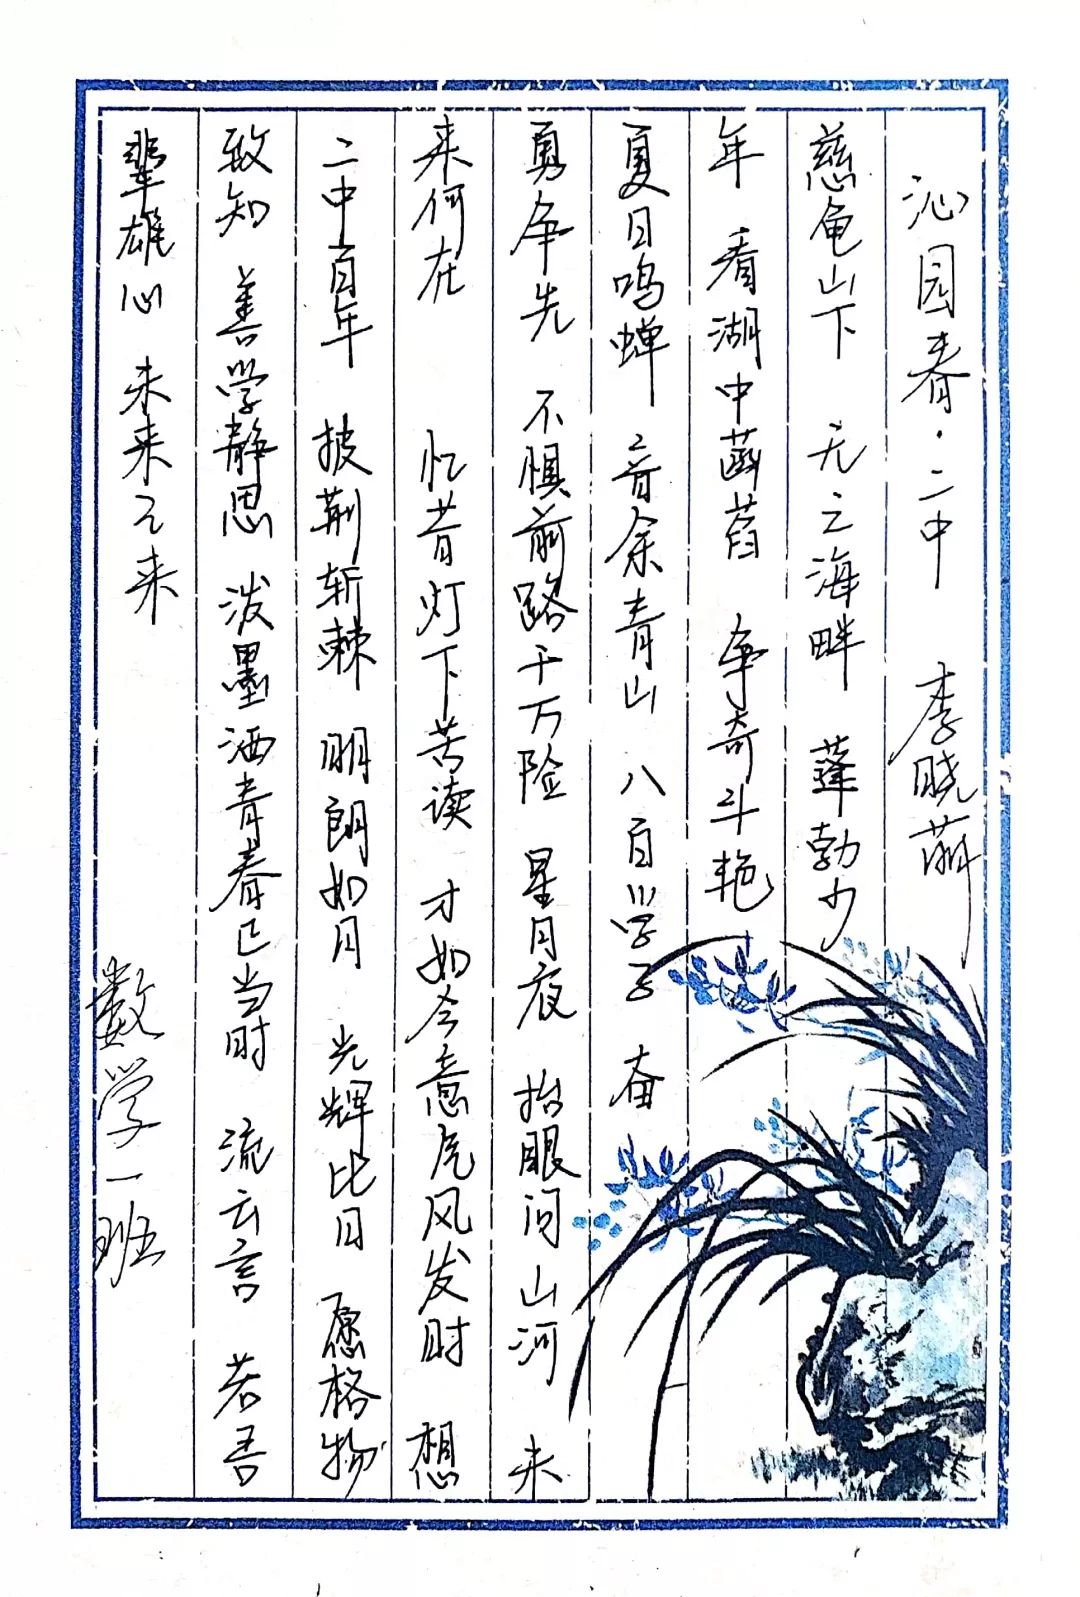 沁园春·二中 李晓萌
慈龟山下 无之海畔 蓬勃少
年 看湖中菡萏 争奇斗艳
夏日鸣蝉 音余青山 八百学子 奋
勇争先 不惧前路千万险 星月夜 抬眼问山河 未
来何在 忆昔灯下苦读 才如今意气风发时 想
二中百年 披荆斩棘 明朗如月 光辉比日 愿格物
致知 善学静思 泼墨洒青春正当时 流云言 若吾
辈雄心 未来已来
数学一班